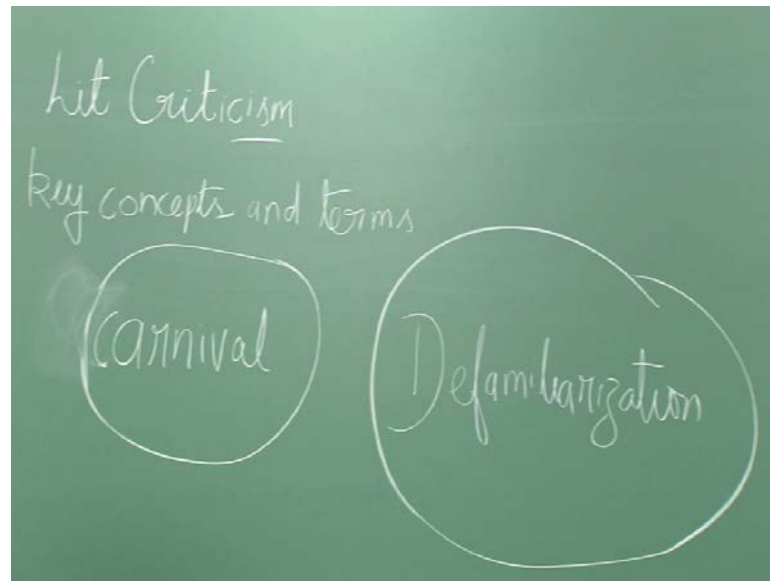 Lit Criticism
key concepts and terms
Carnival
Defamiliarization